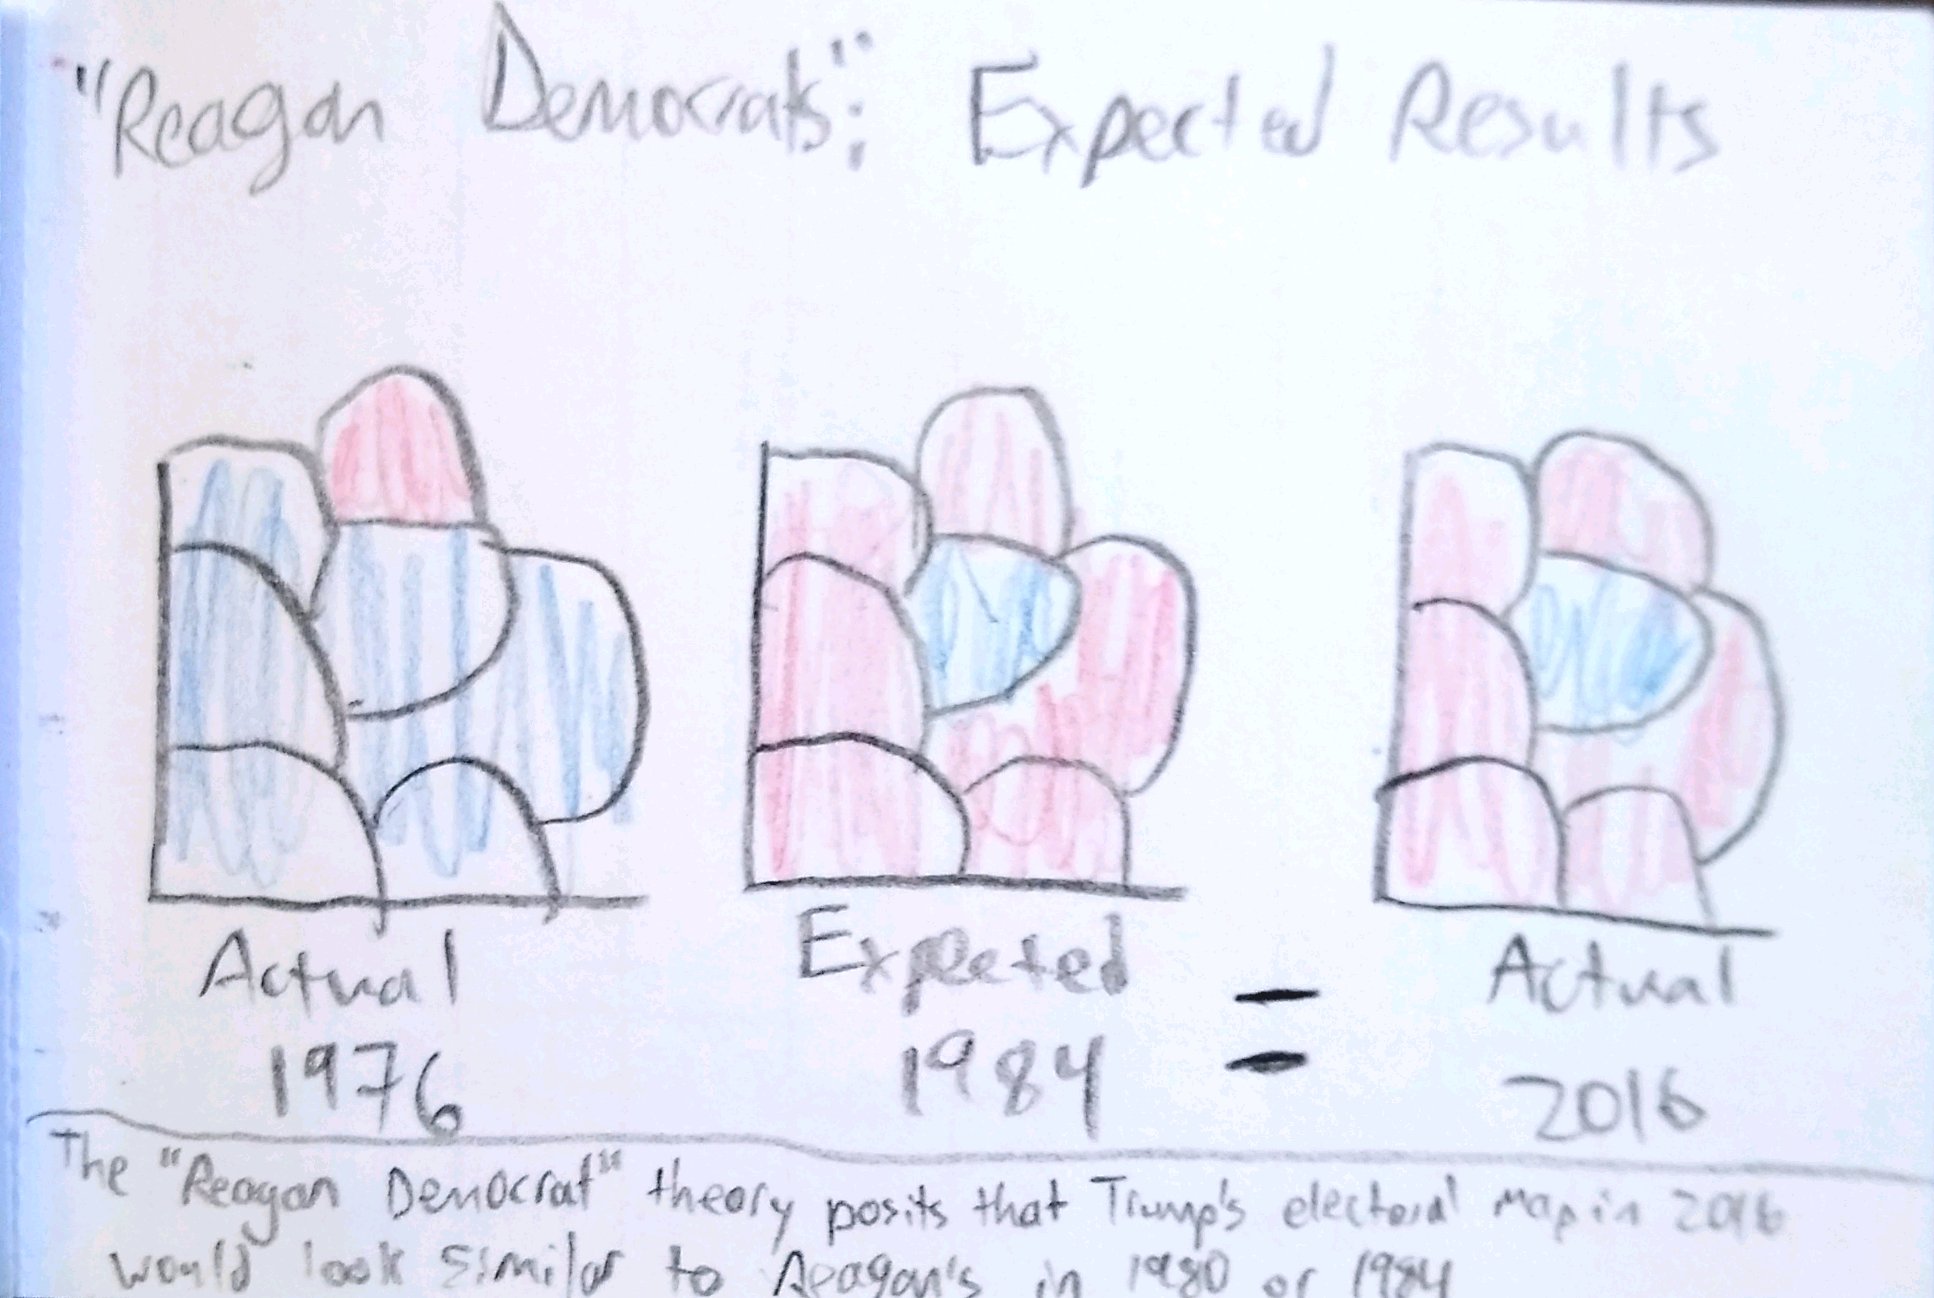 "Reagan Democrats": Expected Results
Actual
1976
Expected
1984
=
Actual
2016
The "Reagan Democrat" theory posits that Trump's electoral map in 2016
would look similar to Reagan's in 1980 or 1984